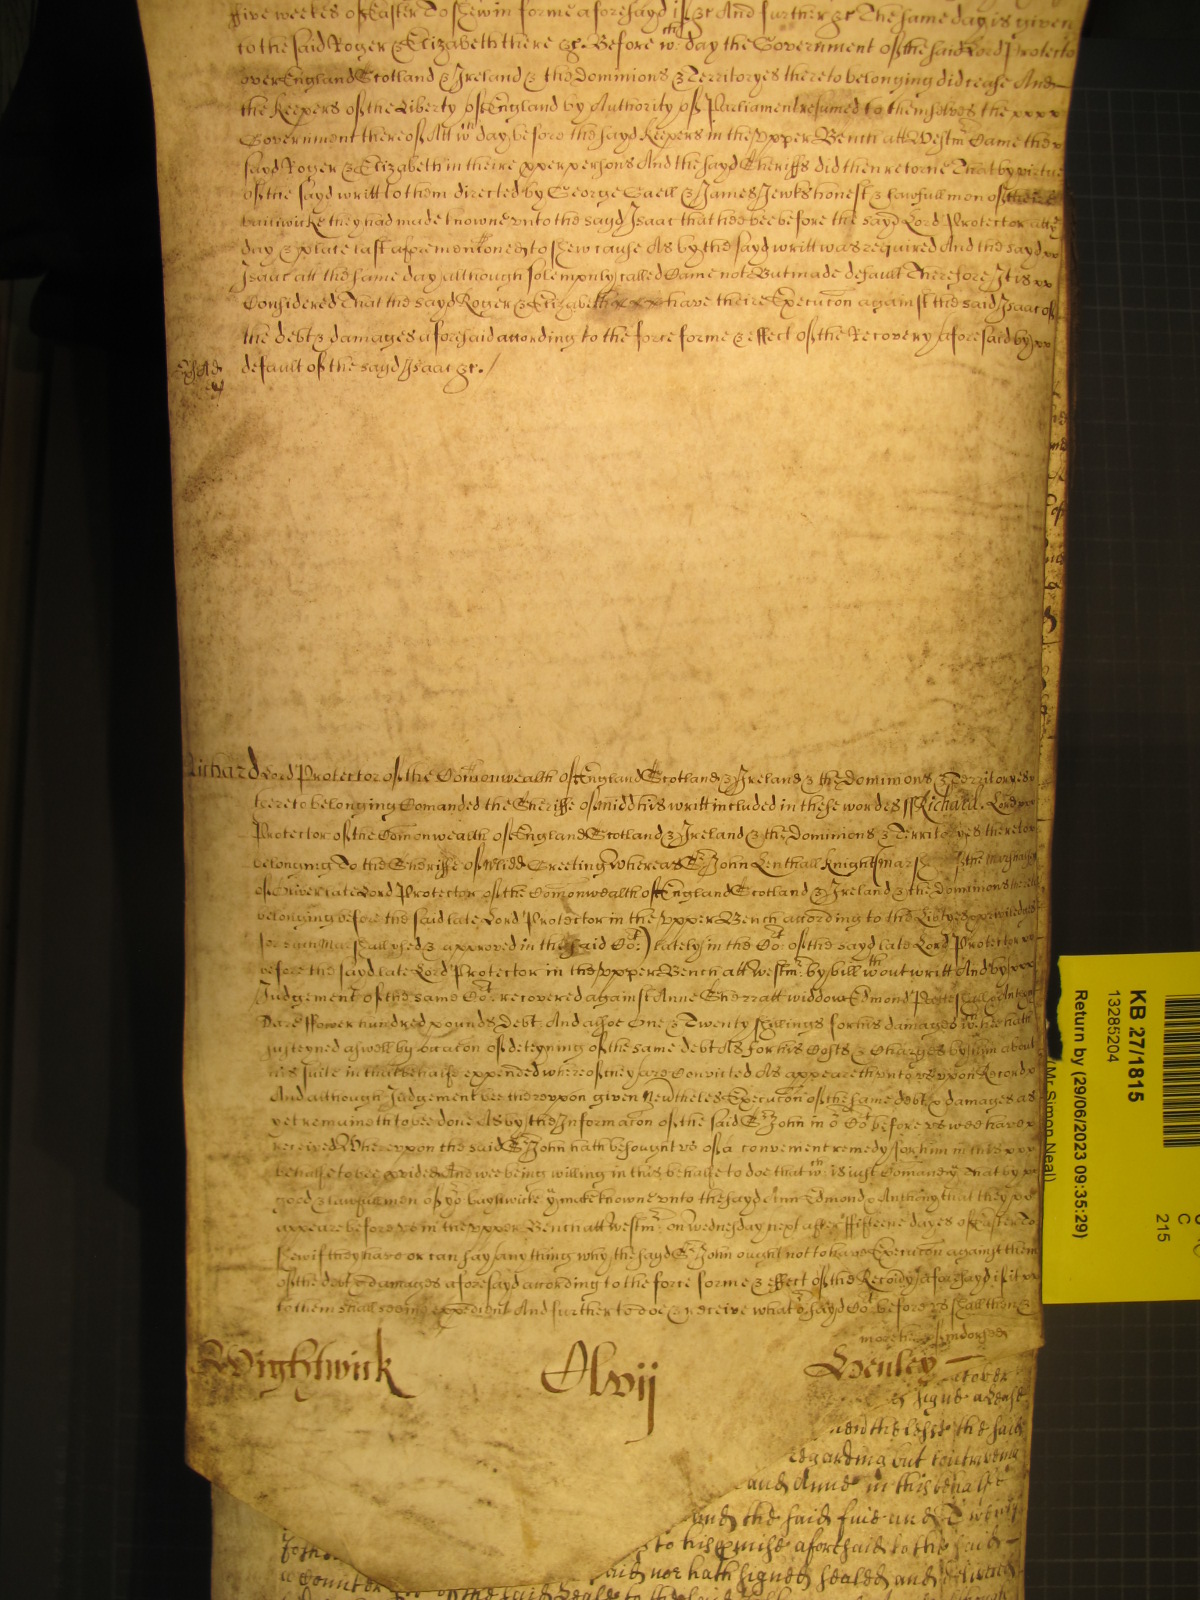 ffive weekes of Easter To shew in forme aforesayd if &c And further &c The same day is given
to the said Roger & Elizabeth there &c. Before wch day the Government of the said Lord Protector
over England Scotland & Ireland & the Dominions & Territoryes thereto belonging did cease And
the Keepers of the Liberty of England by Authority of Parliament resumed to themselves the xxxx
Government thereof Att wch day before the sayd Keepers in the Vpper Bench att Westmr Came the
sayd Roger & Elizabeth in theire pper persons And the sayd Sheriffs did then retorne That by virtue
of the sayd writt to them directed by George Caell & James Jewks honest & lawfull men of theire
bailiwicke they had made knowne vnto the sayd Isaac that hee bee before the sayd Lord Protector att the
day & place last aforementioned to shew cause As by the sayd writt was required And the sayd
Isaac att the same day although solempnly called Came not But made default Therefore It is xx
Considered That the sayd Roger & Elizabeth xxx have theire Execucon against the said Isaac of
the debt & damages aforesaid according to the force forme & effect of the Recovery aforesaid by xx
default of the sayd Isaac &c./
Richard Lord Protector of the Comonwealth of England Scotland & Ireland & the Dominions & Territoryes
thereto belonging Comanded the Sheriffe of Midd his writt included in these wordes ss Richard Lord
Protector of the Comonwealth of England Scotland & Ireland & the Dominions & Territoryes thereto
belonging To the Sheriffe of Midd Greeting Whereas Sr John Lenthall Knight Marshall of the Marshalsey
of Oliver late Lord Protector of the Comonwealth of England Scotland & Ireland & the Dominions thereto
belonging before the said late Lord Protector in the Vpper Bench according to the Libtyes & priviledges
for such Marshall vsed & approved in the said Cot) lately in the Cot of the sayd late Lord Protector
before the sayd late Lord Protector in the Vpper Bench att Westmr by bill wthout writt And by xxx
Judgement of the same Cot recovered against Anne Sherratt widdow Edmond
ffower hundred pounds Debt And alsoe One & Twenty shillings for his damages wch hee hath
susteyned aswell by occacon of deteyning of the same debt As for his Costs & Charges by him about
his suite in that behalfe expended whereof they are Convicted As appeareth vnto vs vpon Record
And although Judgement bee therevpon given Nevtheles Execucon of the same debt & damages as
yet remaineth to bee done As by the Informacon of the said Sr John in or Cot before vs wee have
received Wherevpon the said Sr John hath besought vs of a convenient remedy for him in this xxx
behalfe to bee pvided And wee being willing in this behalfe to doe that wch is iust Comand yt That by
good & lawfull men of yor bayliwicke yu make knowne vnto the sayd Anne Edmond & Anthony that they
appeare before vs in the Vpper Bench att Westmr on Wednesday next after ffifteene dayes of Easter To
shew if they have or can say any thing why the sayd Sr John ought not to have Execucon against them
of the debt & damages aforesayd according to the force forme & effect of the Recovy aforesayd if it xx
to them shall seeme expedient And further to doe & receive what or sayd Cot before vs shall then &
Wightwick Clvij Henley
signe a Lease
neverthelesse the said
regarding but contriveing
and Anne in this behalfe
and the said five and Twenty
to his pmise aforesaid to the said
said nor hath signed sealed and delivered
a Counter
KB 27/1815
13285204
Return by (29/06/2023 09:35:29)
(Mr Simon Neal)
C
215